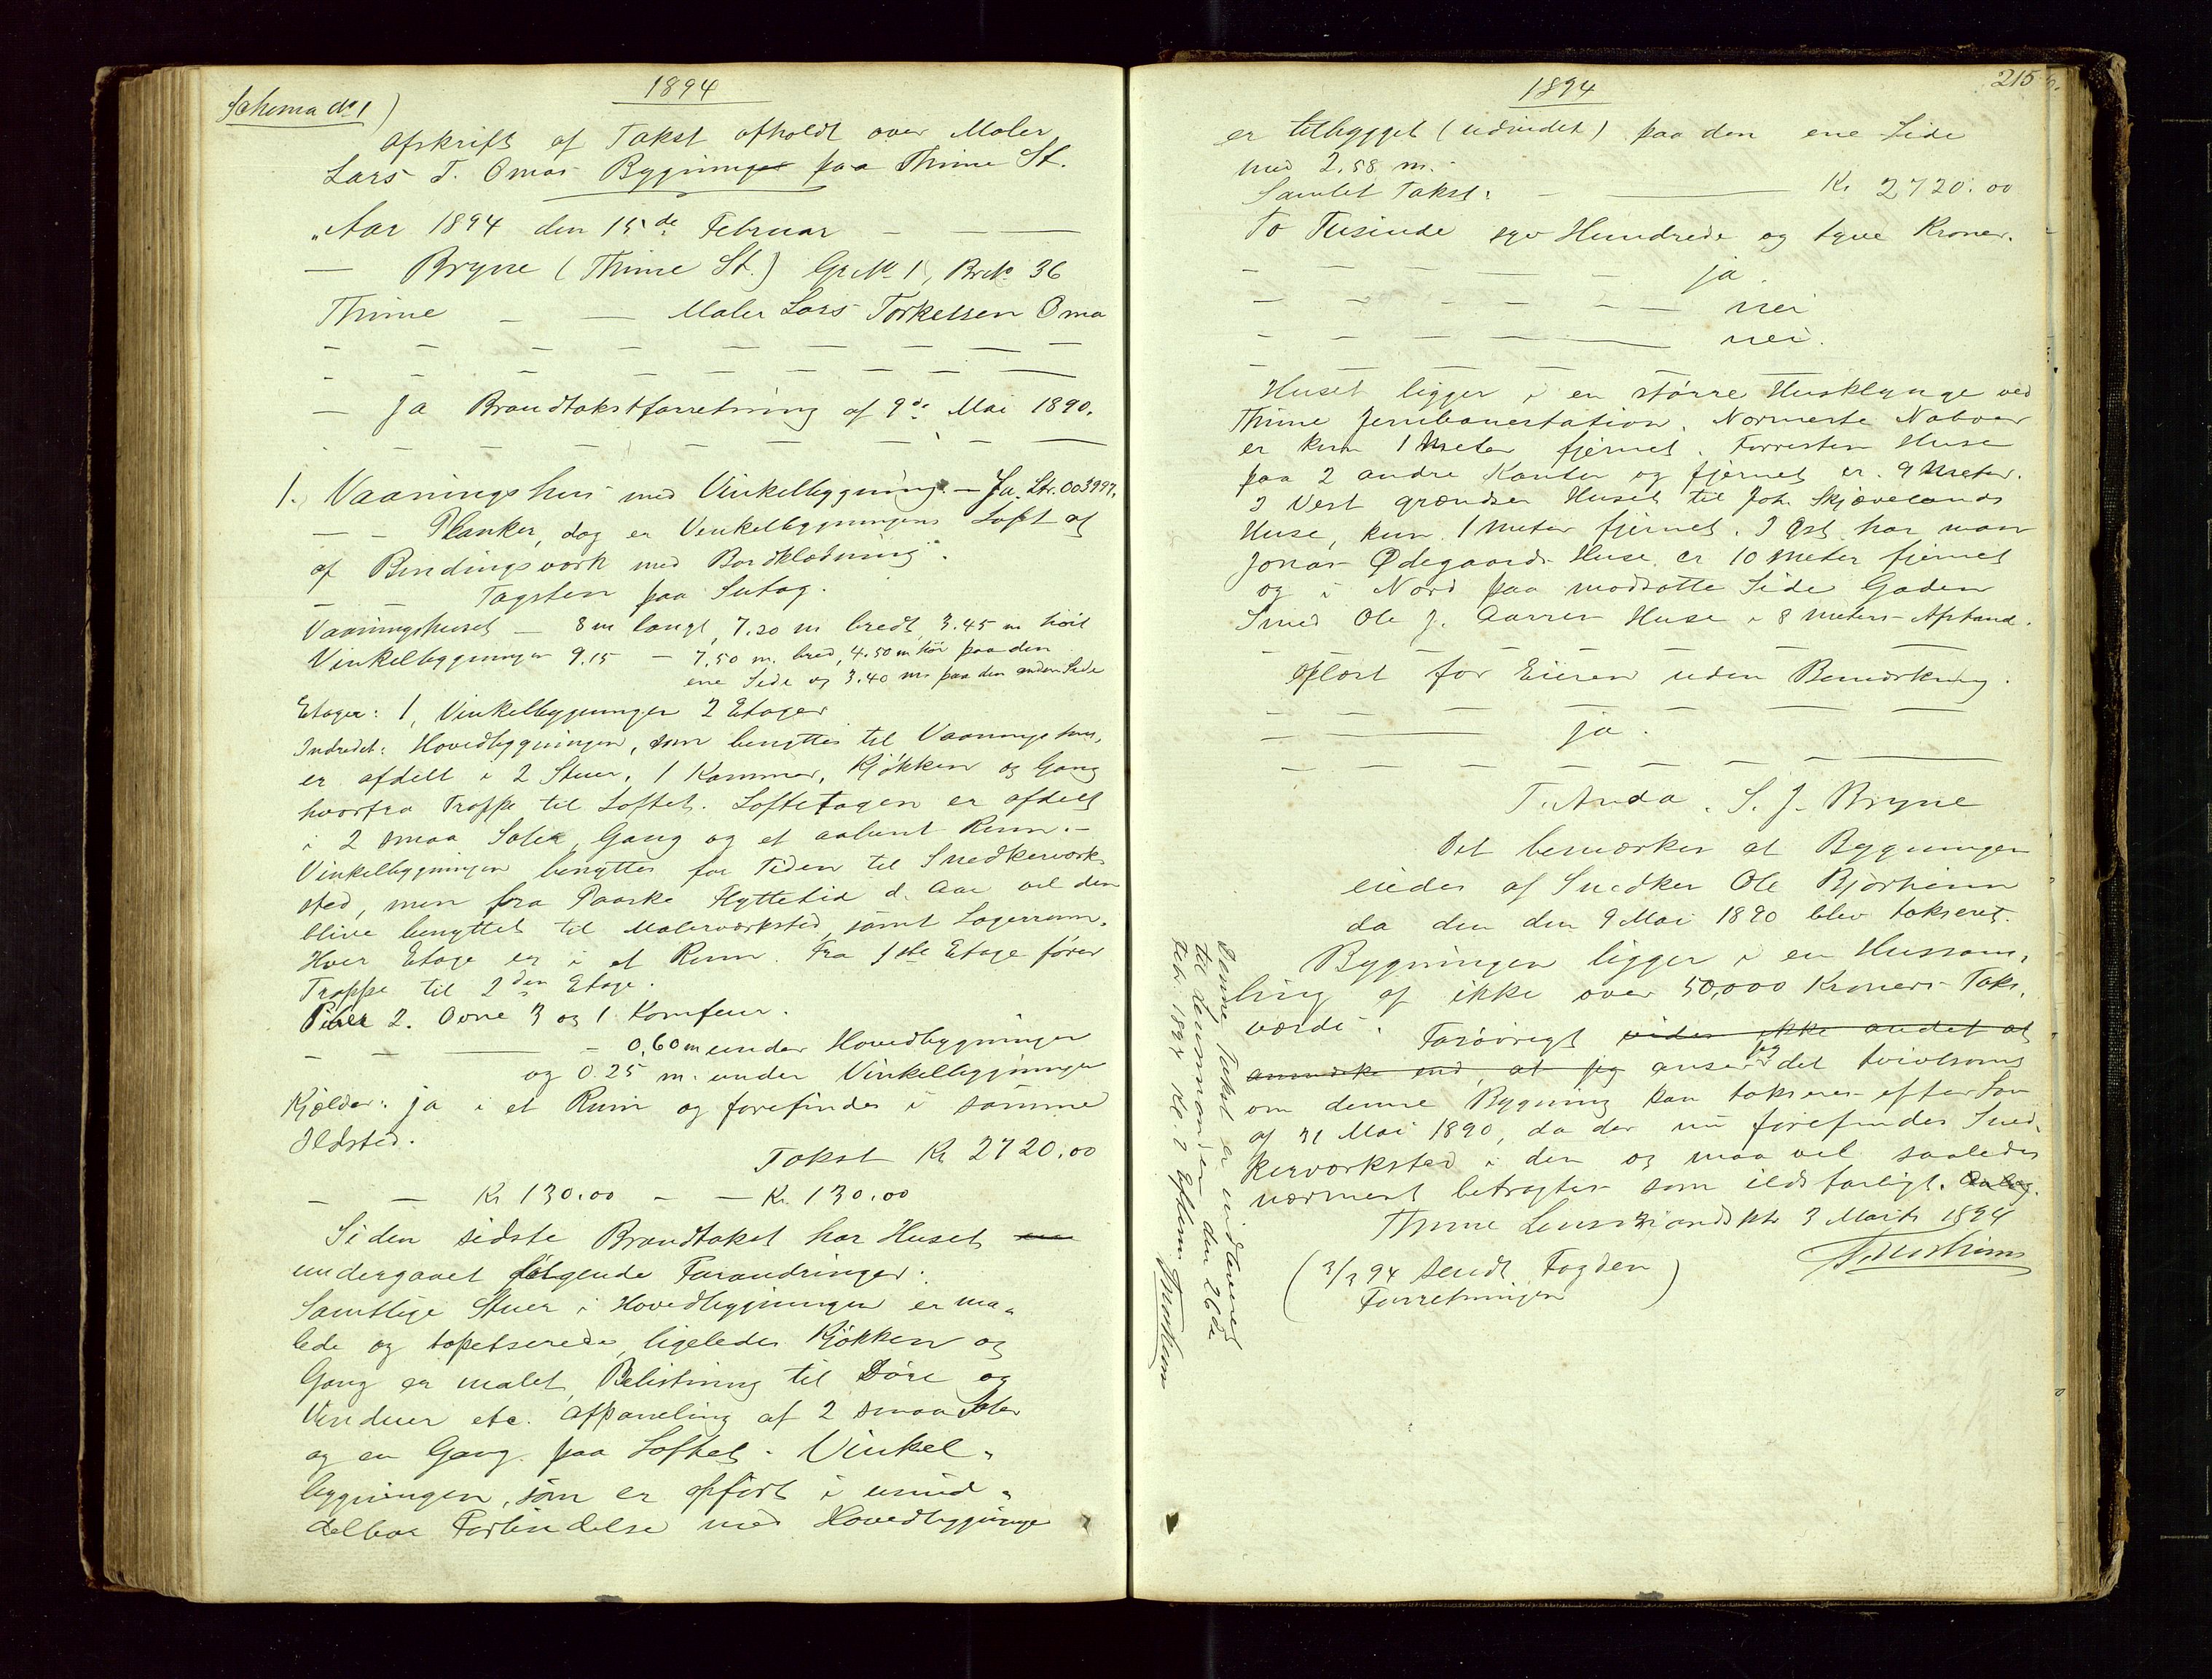 1894
Schema No 1)
Afskrift af Takst afholdt over Maler
Lars T. Omas Bygninger paa Thime St.
"Aar 1894 den 15de Februar — — —
— Bryne (Thime St.) Gr No 1, Br No 36
Thime — — Maler Lars Torkelsen Oma
— — — — — — — —
— — — — — — — —
— Ja Brandtakstforretning af 9de Mai 1890.
— — — — — — — —
1. Vaaningshus med Vinkelbygning. — Ja. Ltr. 003997.
— — Planker, dog er Vinkelbygningens Loft af
af Bindingsværk med Bordklædning".
— — Tagsten paa Sutag.
Vaaningshuset — 8 m langt, 7.20 m bredt, 3.45 m höit
Vinkelbygningen 9.15 — 7.50 m. bred, 4.50 m höi paa den
ene Side og 3.40 m paa den anden Side
Etager: 1, Vinkelbygningen 2 Etager
Indredet: Hovedbygningen, som benyttes til Vaaningshus,
er afdelt i 2 Stuer, 1 Kammer, Kjökken og Gang
hvorfra Trappe til Loftet. Loftetagen er afdelt
i 2 smaa Saler, Gang og et aabent Rum. —
Vinkelbygningen benyttes for Tiden til Snedkerværk-
sted, men fra Paaske Flyttetid d. Aar vil den
blive benyttet til Malerværksted, samt Lagerrum.
Hver Etage er i et Rum. Fra 1ste Etage förer
Trappe til 2den Etage.
Piber 2. Ovne 3 og 1 Komfur.
— — — — 0,60 m under Hovedbygningen
og 0.25 m. under Vinkelbygningen
Kjælder: ja i et Rum og forefindes i samme
Ildsted.
Takst Kr 2720.00
— — Kr 130.00 — — Kr. 130.00
Siden sidste Brandtakst har Huset
undergaaet følgende Forandringer:
Samtlige Stuer i Hovedbygningen er ma-
lede og tapetserede, ligeledes Kjøkken og
Gang er malet, Belistning til Döre og
Vinduer etc. Afpaneling af 2 smaa Saler
og en Gang paa Loftet. Vinkel-
bygningen, som er opfört i umid-
delbar Forbindelse med Hovedbygningen
1894
215
er tilbygget (udvidet) paa den ene Side
med 2.58 m.
Samlet Takst: — — Kr 2720.00
To Tusinde syv Hundrede og tyve Kroner.
— — — — — ja.
— — — — — — nei
— — — — — nei.
— — — — — — — —
Huset ligger i en större Husklynge ved
Thime Jernbanestation. Nærmeste Naboer
er kun 1 Meter fjernet. Forresten Huse
paa 2 andre Kanter og fjernet er 9 Meter.
I Vest grændser Huset til Joh. Skjævelands
Huse, kun 1 Meter fjernet. I Øst har man
Jonas Ødegaards Huse er 10 Meter fjernet
og i Nord paa modsatte Side Gaden
Smed Ole J. Aarres Huse i 8 Meters Afstand.
— — — — — — — —
Oplæst for Eieren uden Bemærkning.
— — — — — — —
— — — ja.
— — — — — — — —
T. Anda. S. J. Bryne
Det bemærkes at Bygningen
eiedes af Snedker Ole Bjorheim
da den den 9 Mai 1890 blev takseret.
Bygningen ligger i en Hussam-
ling af ikke over 50,000 Kroners Takst-
værdi. Forøvrigt vides ikke andet at
anmærke end, at jeg anser jeg det tvivlsomt
om denne Bygning kan takseres efter Lov
af 31 Mai 1890, da der nu forefindes Sned-
kerværksted i den og maa vel saaledes
nærmest betragtes som ildsfarligt. Anlæg.
Thime Lensmandskt 3 Marts 1894
(3/3 94 sendt Fogden
Forretningen)
Denne Takst er indleveret
til Lensmanden den 26de
Febr. 1894 Kl. 2 Efterm.